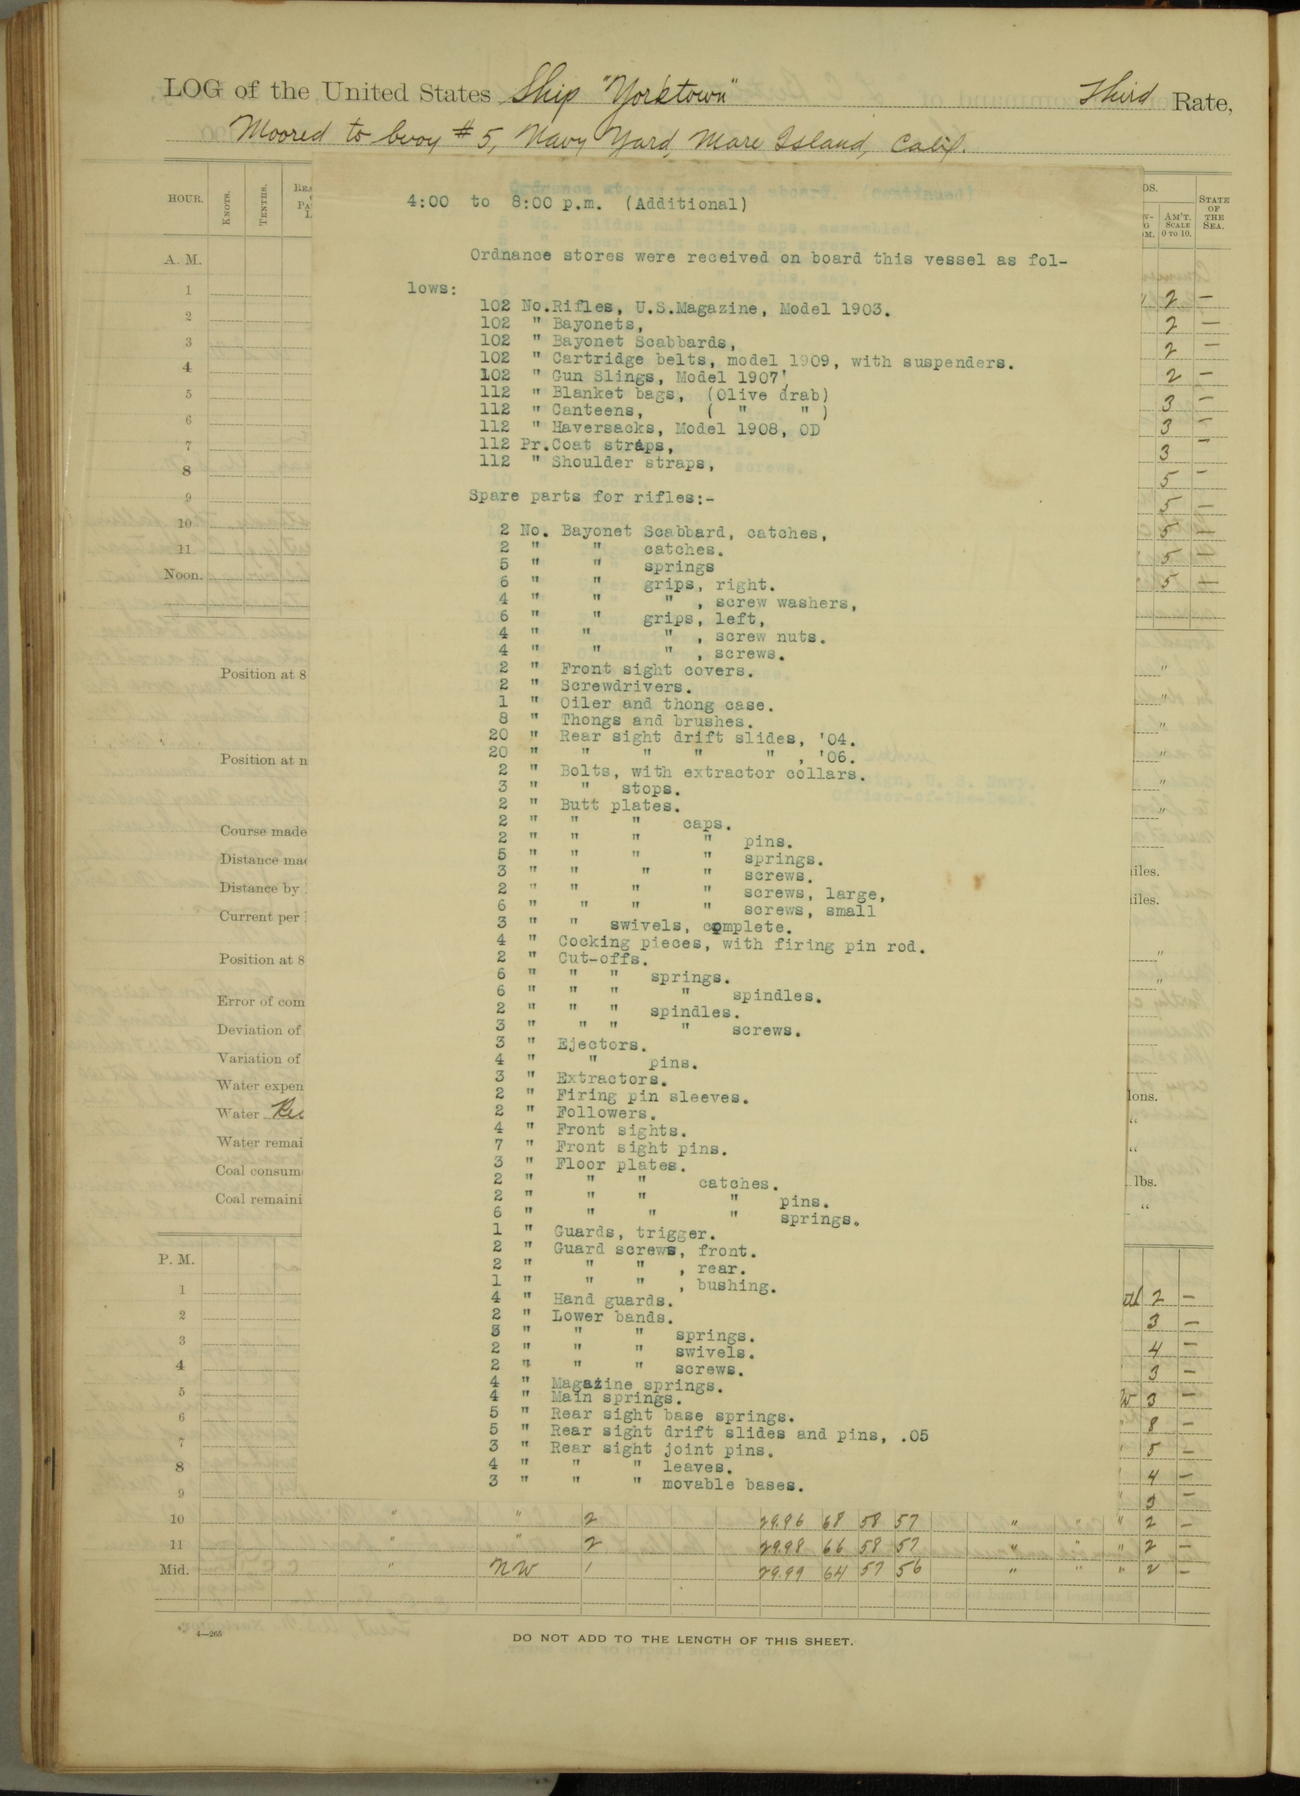 LOG of the United States Ship "Yorktown" Third Rate,
Moored to buoy #5, Navy Yard, Mare Island, Calif.
HOUR. KNOTS. TENTHS. AM'T. SCALE 0 TO 10. STATE OF THE SEA.
4:00 to 8:00 p.m. (Additional)
Ordnance stores were received on board this vessel as fol-
lows:
102 No.Rifles, U.S.Magazine, Model 1903.
102 " Bayonets,
102 " Bayonet Scabbards,
102 " Cartridge belts, model 1909, with suspenders.
102 " Gun Slings, Model 1907,
112 " Blanket bags, (Olive drab)
112 " Canteens, ( " " )
112 " Haversacks, Model 1908, OD
112 Pr.Coat straps,
112 " Shoulder straps,
Spare parts for rifles:-
2 No. Bayonet Scabbard, catches,
2 " " catches.
5 " " springs
6 " " grips, right.
4 " " " , screw washers,
6 " " grips, left,
4 " " " , screw nuts.
4 " " " , screws.
2 " Front sight covers.
2 " Screwdrivers.
1 " Oiler and thong case.
8 " Thongs and brushes.
20 " Rear sight drift slides, '04.
20 " " " " " , '06.
2 " Bolts, with extractor collars.
3 " " stops.
2 " Butt plates.
2 " " " caps.
2 " " " " pins.
5 " " " " springs.
3 " " " " screws.
2 " " " " screws, large,
6 " " " " screws, small
3 " " swivels, complete.
4 " Cocking pieces, with firing pin rod.
2 " Cut-offs.
6 " " " springs.
6 " " " " spindles.
2 " " " spindles.
3 " " " " screws.
3 " Ejectors.
4 " " pins.
3 " Extractors.
2 " Firing pin sleeves.
2 " Followers.
4 " Front sights.
7 " Front sight pins.
3 " Floor plates.
2 " " " catches.
2 " " " " pins.
6 " " " " springs.
1 " Guards, trigger.
2 " Guard screws, front.
2 " " " , rear.
1 " " " , bushing.
4 " Hand guards.
2 " Lower bands.
" " " springs.
2 " " " swivels.
2 " " " screws.
4 " Magazine springs.
4 " Main springs.
5 " Rear sight base springs.
5 " Rear sight drift slides and pins, .05
3 " Rear sight joint pins.
4 " " " leaves.
3 " " " movable bases.
A. M.
1 2 —
2 2 —
3 2 —
4 2 —
5 3 —
6 3 —
7 3 —
8 5 —
9 5 —
10 5 —
11 5 —
Noon. 5 —
Position at 8
Position at n
Course made
Distance ma
Distance by
Current per
Position at 8
Error of com
Deviation of
Variation of
Water expen
Water Rec
Water remai
Coal consum
Coal remaini
iles.
iles.
lons.
lbs.
P. M.
1 2 —
2 3 —
3 4 —
4 3 —
5 W 3 —
6 8 —
7 5 —
8 4 —
9 3 —
10 " " 2 29.96 68 58 57 " " " 2 —
11 " " 2 29.98 66 58 57 " " " 2 —
Mid. " NW 1 29.99 64 57 56 " " " 2 —
4—265
DO NOT ADD TO THE LENGTH OF THIS SHEET.